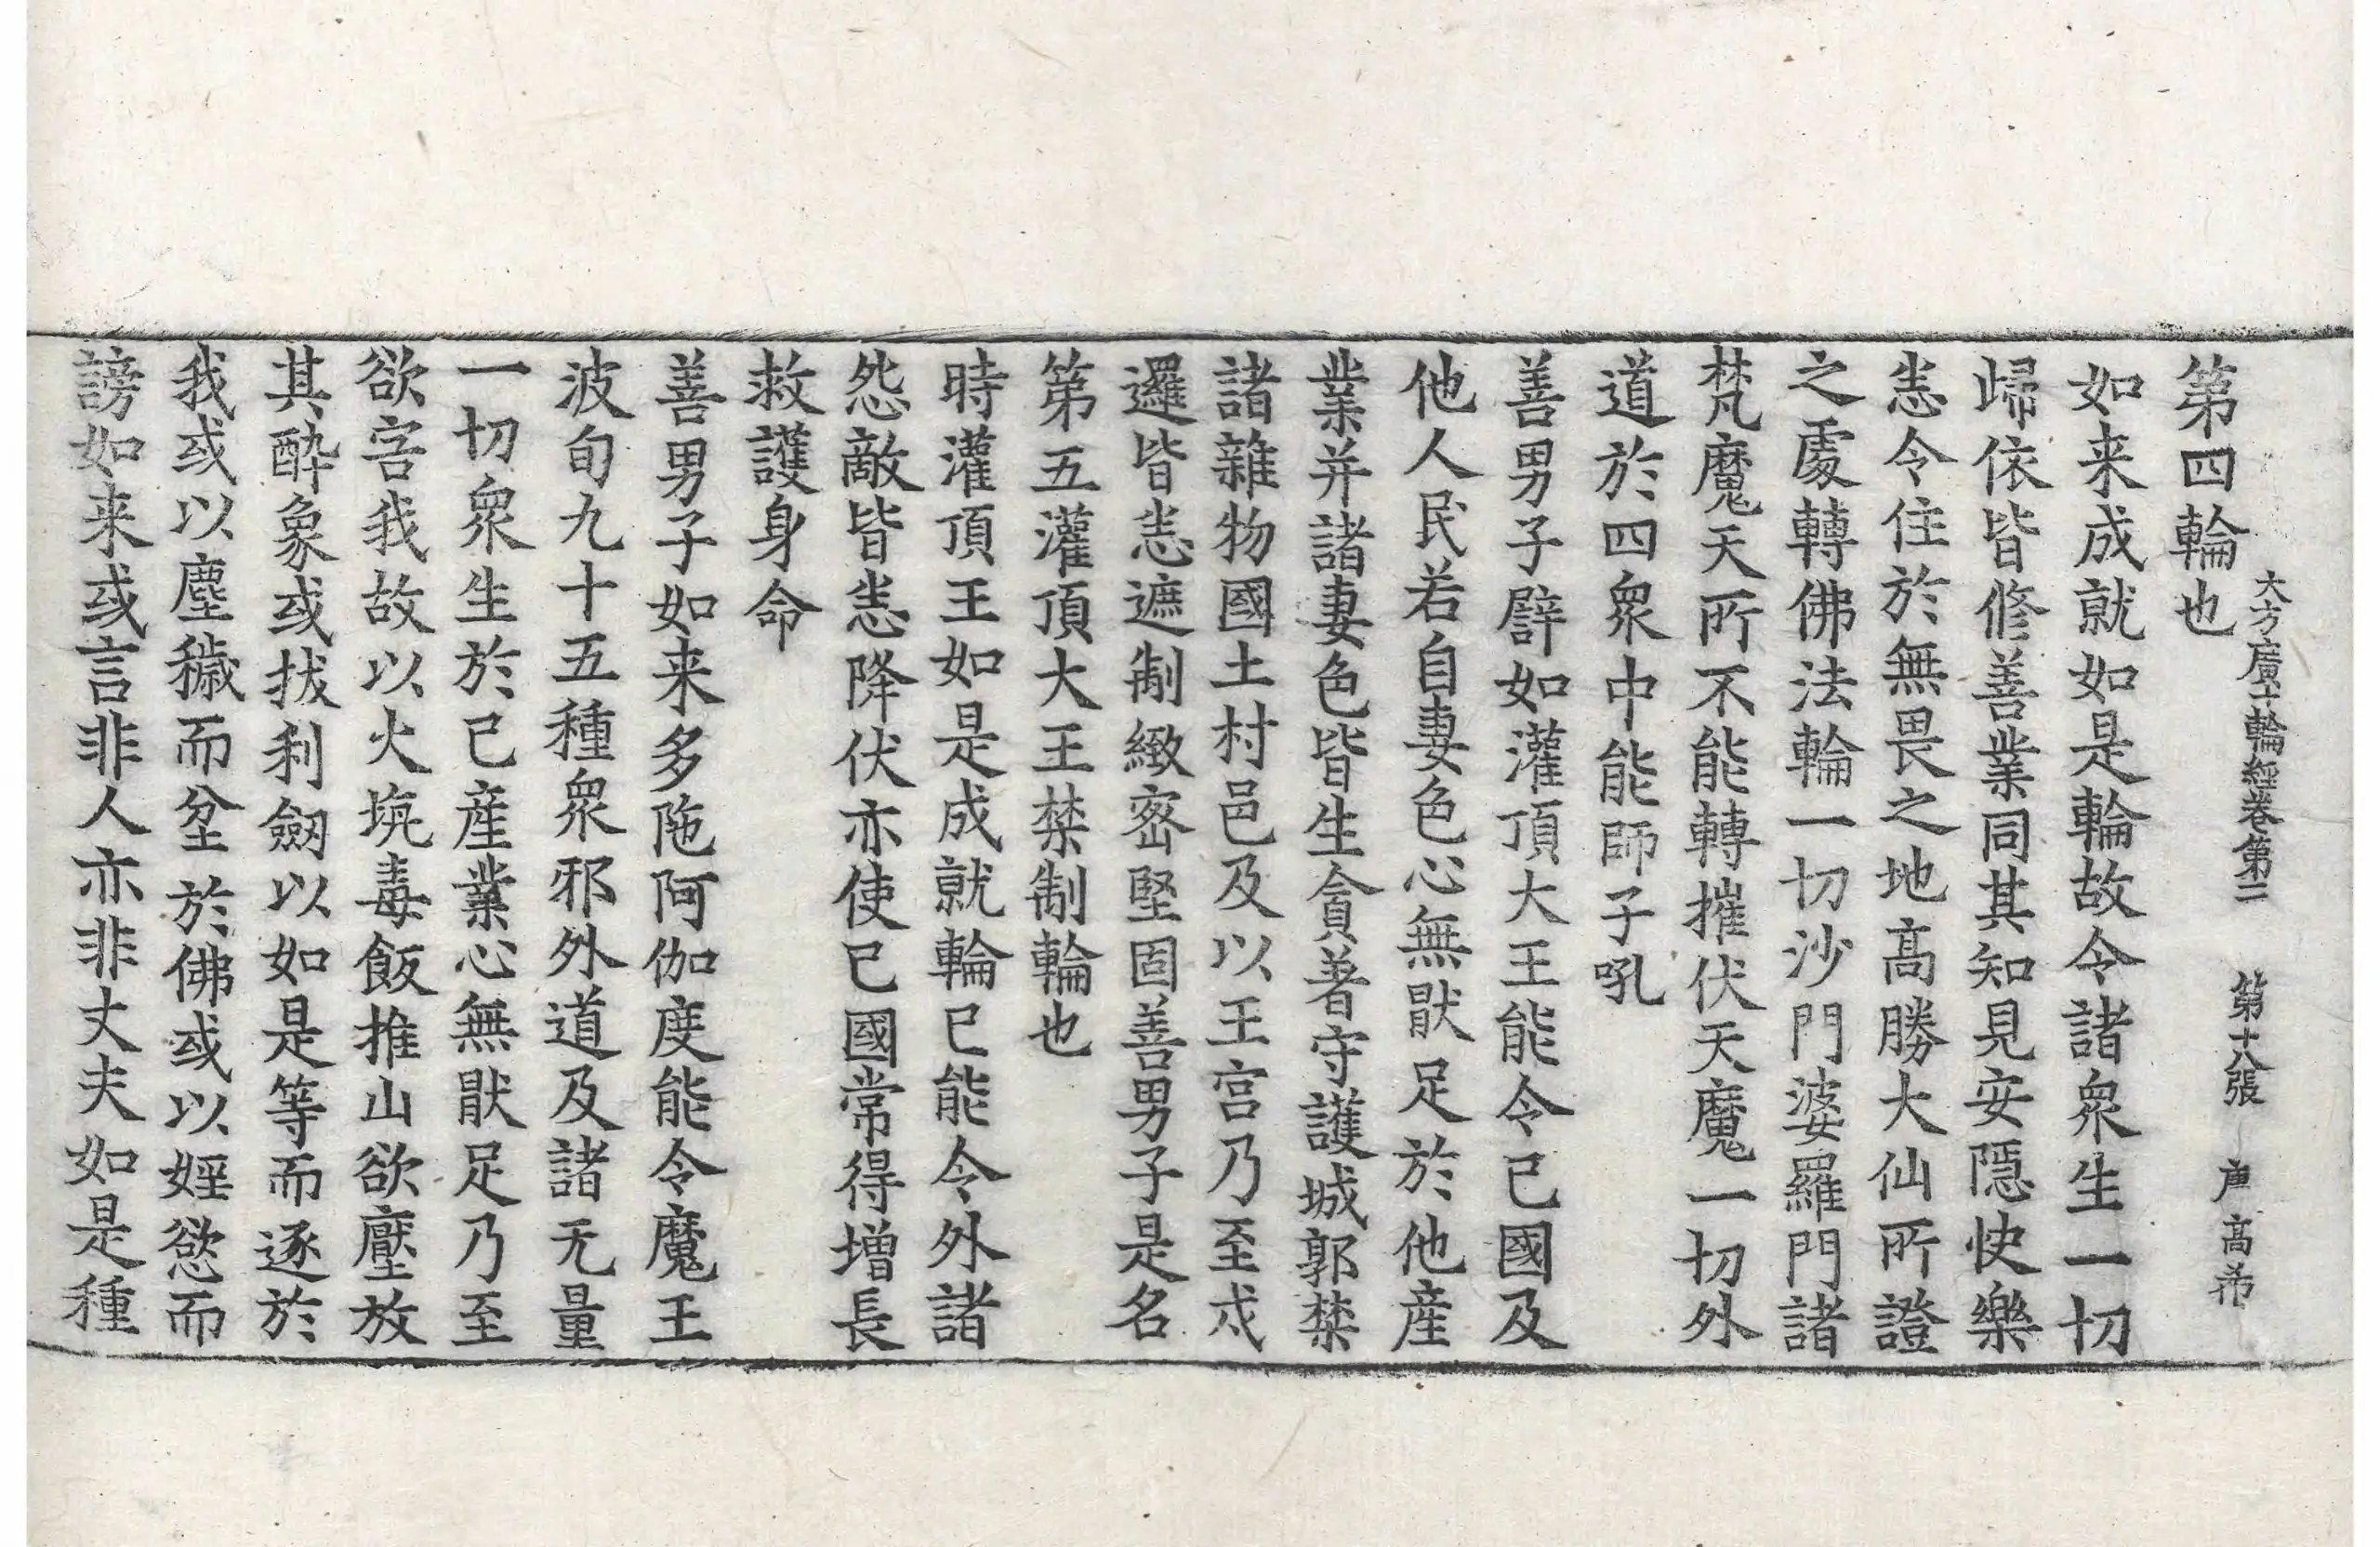 大方廣十輪經卷第二　第十八張　唐　高希
第四輪也
如来成就如是輪故令諸衆生一切
歸依皆修善業同其知見安隱快樂
恙令住於無畏之地髙勝大仙所證
之處轉佛法輪一切沙門婆羅門諸
梵魔天所不能轉摧伏天魔一切外
道於四衆中能師子吼
善男子譬如灌頂大王能令己國及
他人民若自妻色心無猒足於他産
業并諸妻色皆生貪著守護城郭禁
諸雜物國土村邑及以王宫乃至戍
邏皆悉遮制緻密堅固善男子是名
第五灌頂大王禁制輪也
時灌頂王如是成就輪已能令外諸
怨敵皆悉降伏亦使已國常得增長
救護身命
善男子如来多陁阿伽度能令魔王
波旬九十五種衆邪外道及諸无量
一切衆生於已産業心無猒足乃至
欲害我故以火坑毒飯推山欲壓放
其酔象或拔利劒以如是等而逐於
我或以塵穢而坌於佛或以婬慾而
謗如来或言非人亦非丈夫如是種